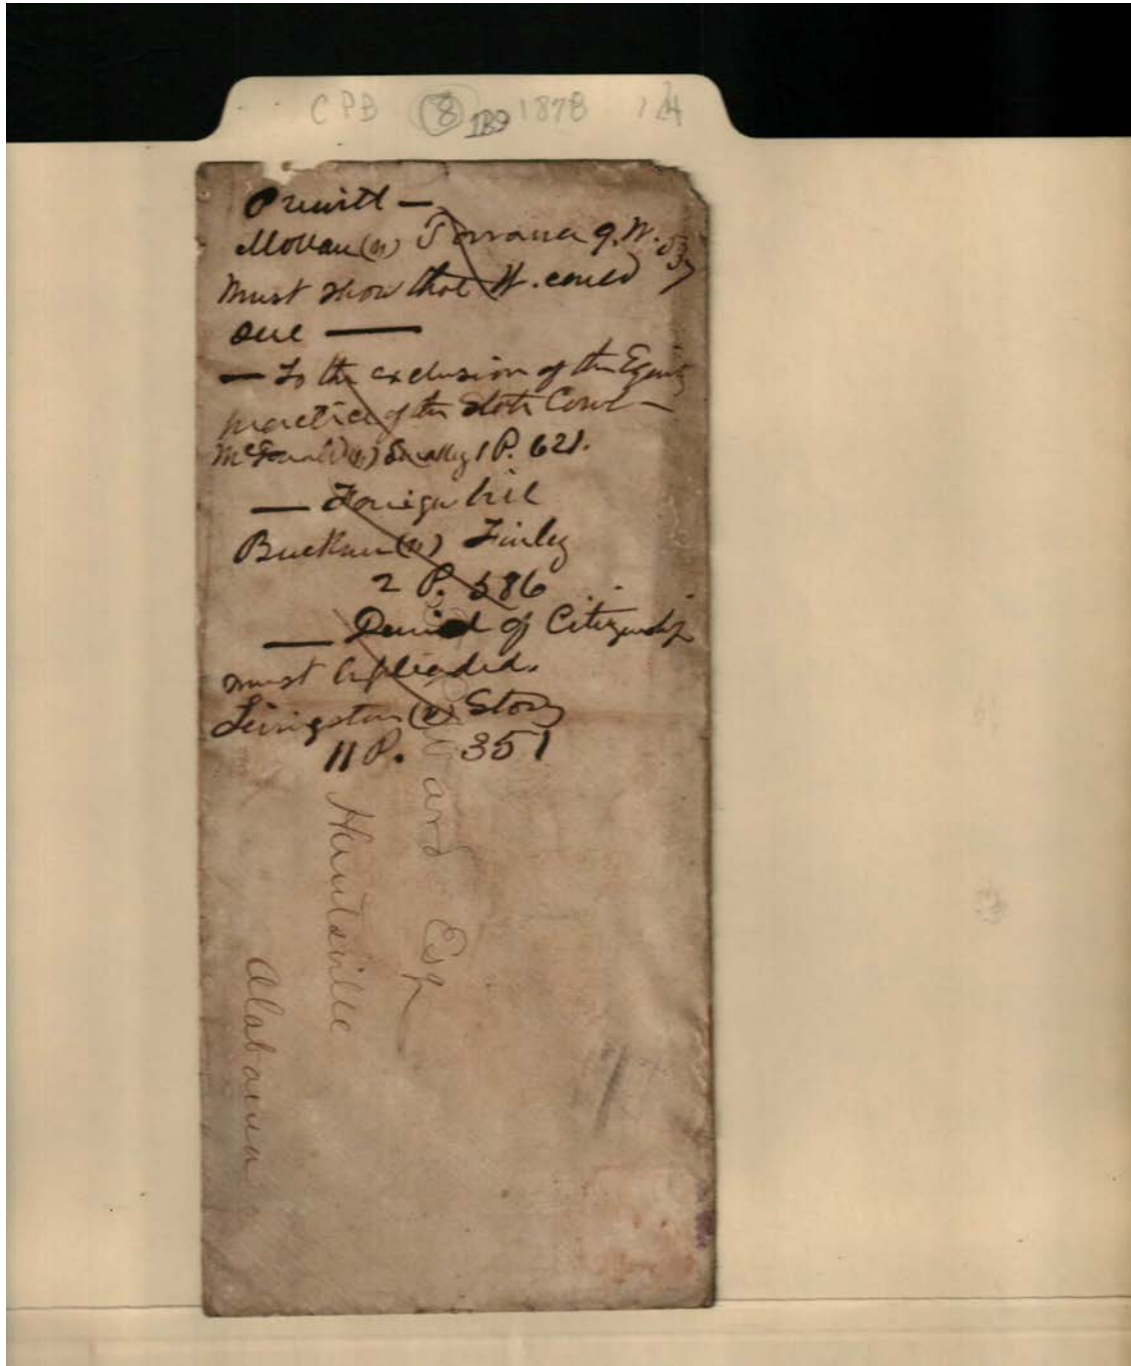 CPB 8 1878
Prewitt —
Mollan (v) Torrance 9. W. 537
Must show that W. could
sue —
— To the exclusion of the Equity
practice of the State Court —
McDonald (v) Smalley 1 P. 621.
— Foreign bill
Buckner (v) Finley
2 P. 586
— Denial of Citizenship
must be pleaded.
Livingston (v) Story
11 P. 351
ard Esq
Huntsville
Alabama